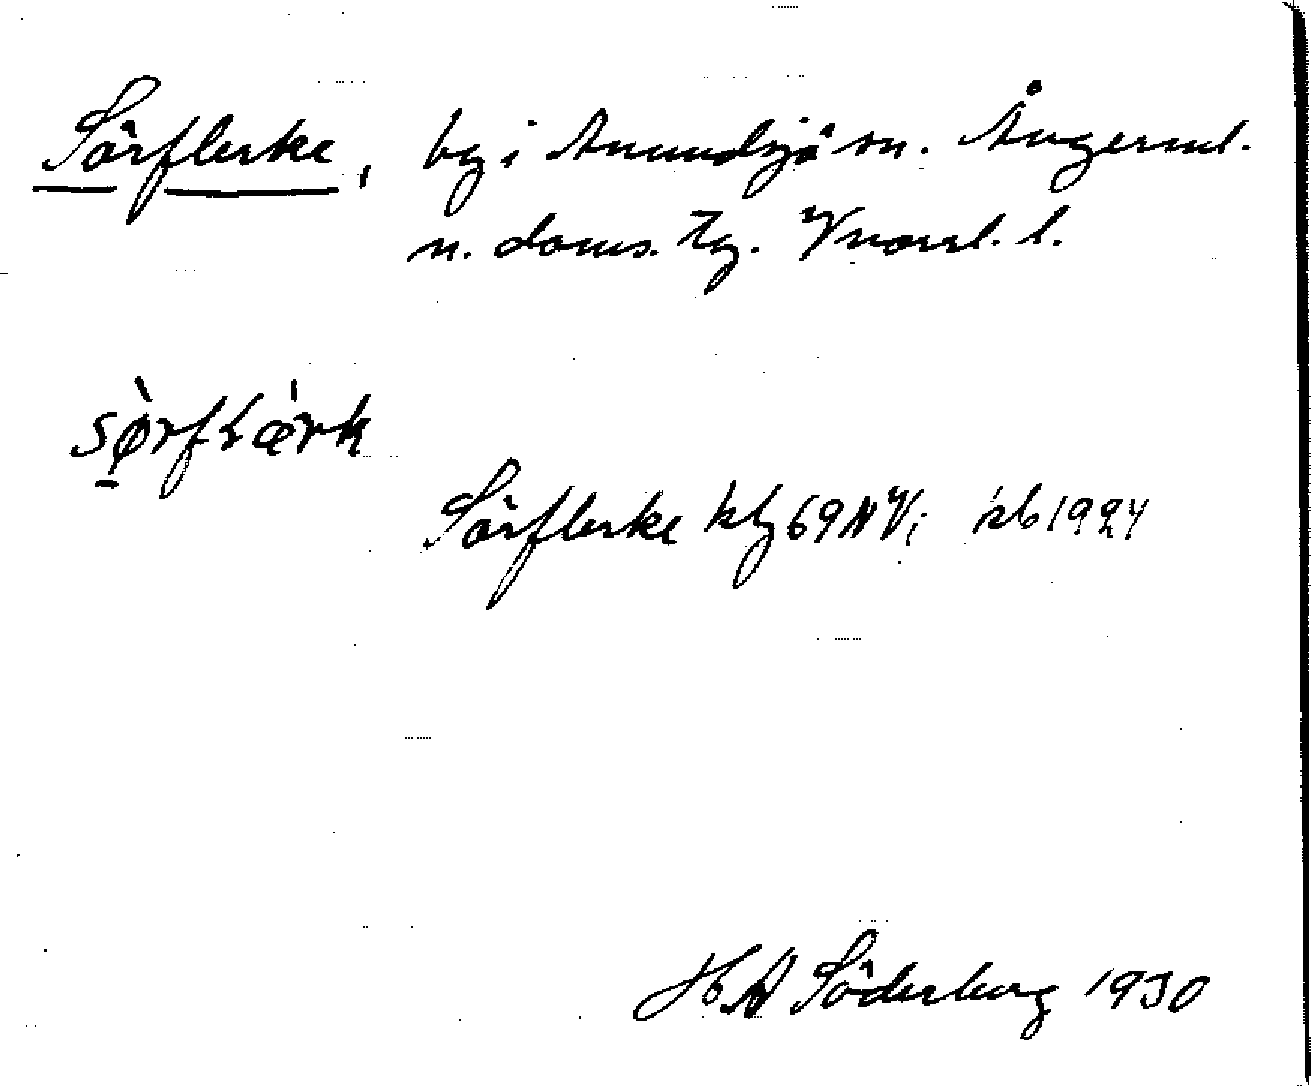 Sörflerke, by i Anundsjö sn. Ångerml.
n. doms. tg. Vnorrl. l.
sø̀rfⱡǽrk
Sörflerke kbl 69 NV; kb 1924
H A Söderberg 1930